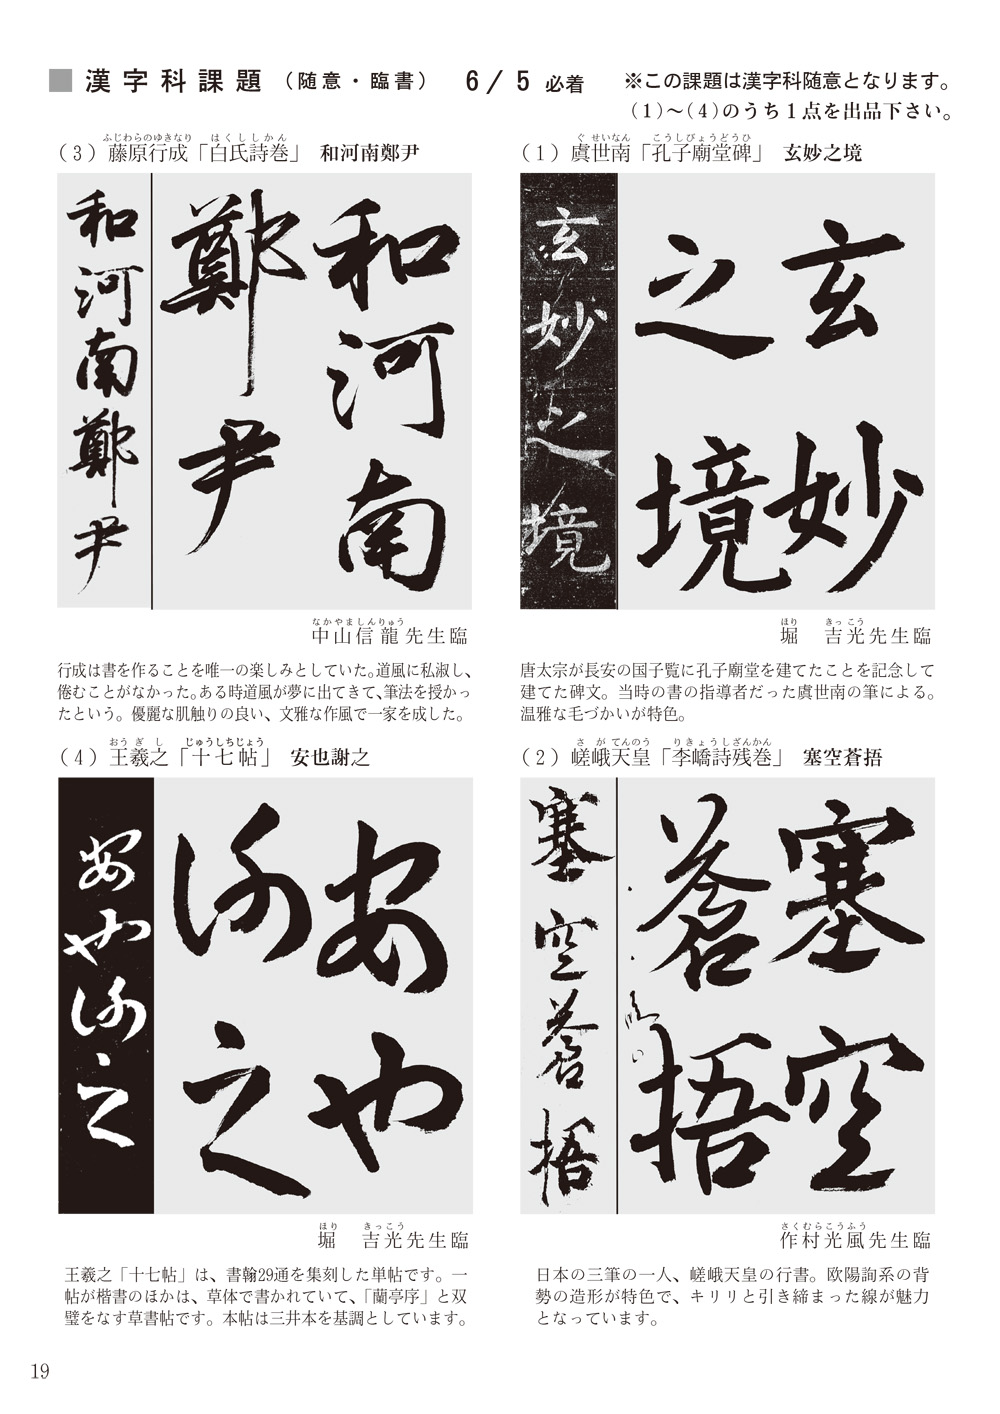 ■漢字科課題（随意・臨書） 6/5 必着
※この課題は漢字科随意となります。
(1)～(4)のうち１点を出品下さい。
ぐせいなん こうしびょうどうひ
(1) 虞世南「孔子廟堂碑」 玄妙之境
玄妙之境
玄妙
之境
ほり きっこう
堀 吉光先生臨
唐太宗が長安の国子覧に孔子廟堂を建てたことを記念して
建てた碑文。当時の書の指導者だった虞世南の筆による。
温雅な毛づかいが特色。
さがてんのう りきょうしざんかん
(2) 嵯峨天皇「李嶠詩残巻」 塞空蒼捂
塞空蒼捂
塞空
蒼捂
さくむらこうふう
作村光風先生臨
日本の三筆の一人、嵯峨天皇の行書。欧陽詢系の背
勢の造形が特色で、キリリと引き締まった線が魅力
となっています。
ふじわらのゆきなり はくししかん
(3) 藤原行成「白氏詩巻」 和河南鄭尹
和河南鄭尹
和河南
鄭尹
なかやましんりゅう
中山信龍先生臨
行成は書を作ることを唯一の楽しみとしていた。道風に私淑し、
倦むことがなかった。ある時道風が夢に出てきて、筆法を授かっ
たという。優麗な肌触りの良い、文雅な作風で一家を成した。
おうぎし じゅうしちじょう
(4) 王羲之「十七帖」 安也謝之
安也謝之
安也
謝之
ほり きっこう
堀 吉光先生臨
王羲之「十七帖」は、書翰29通を集刻した単帖です。一
帖が楷書のほかは、草体で書かれていて、「蘭亭序」と双
璧をなす草書帖です。本帖は三井本を基調としています。
19